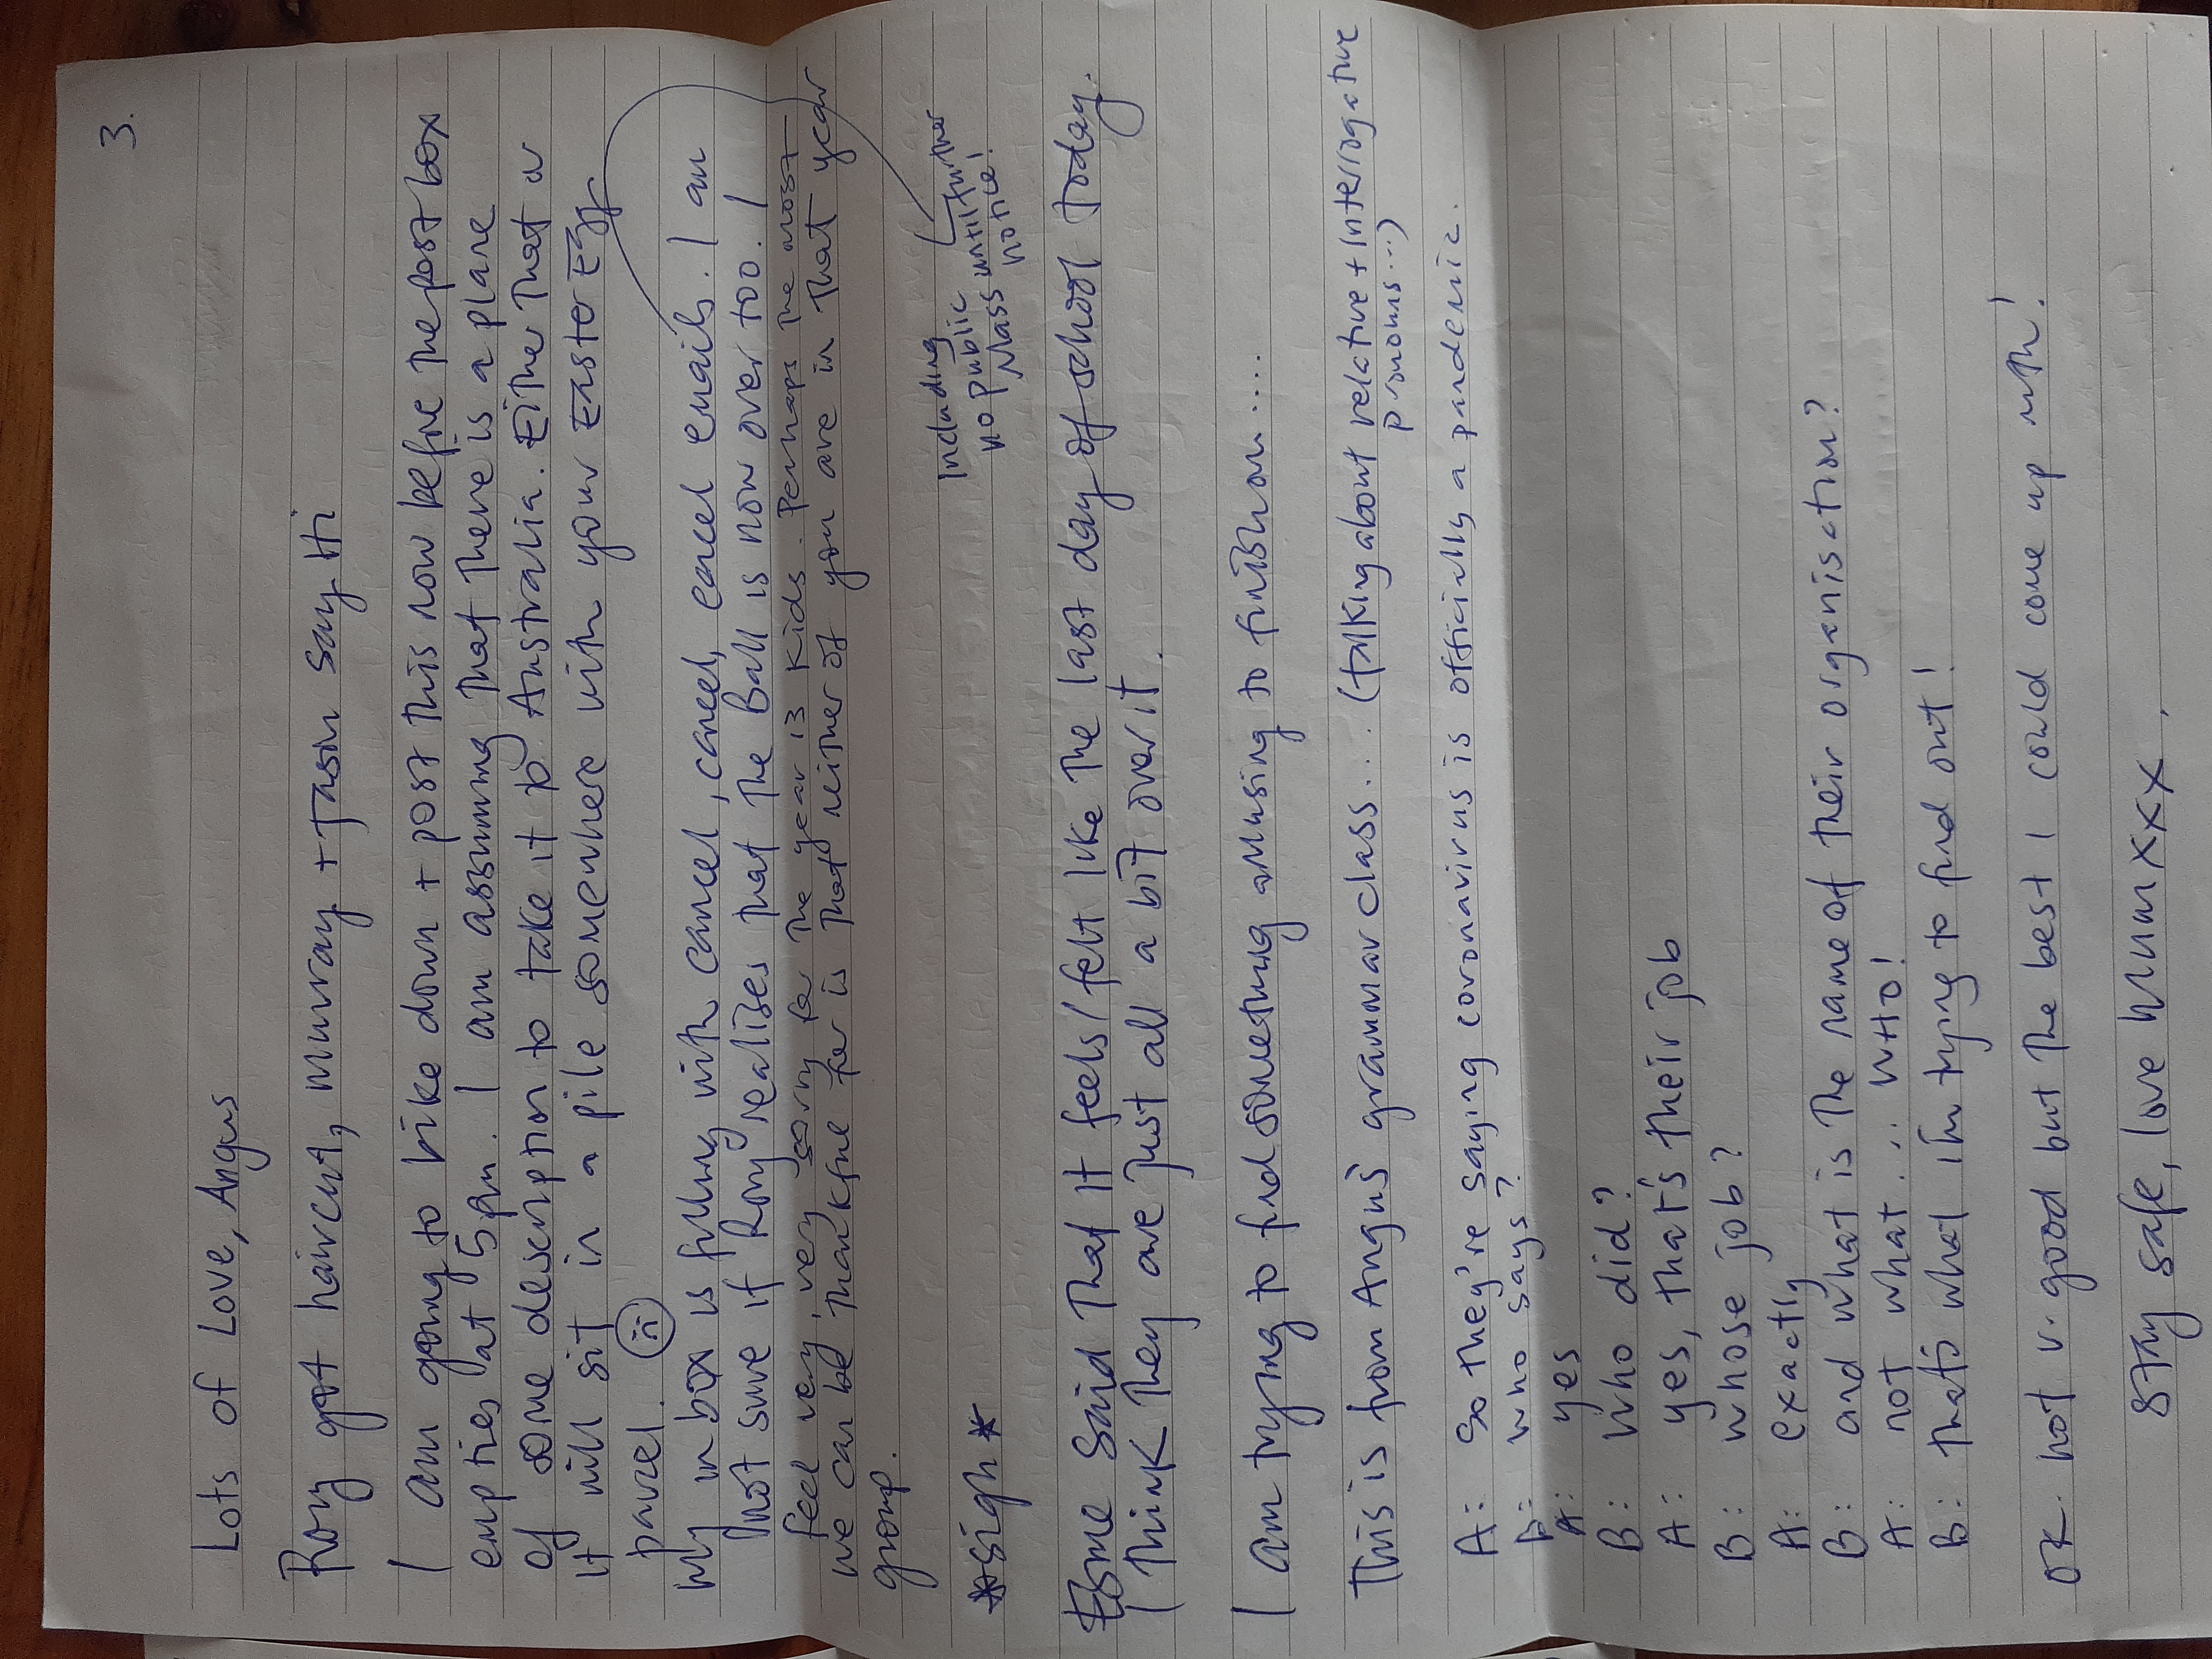 3.
Lots of Love, Angus
Rory got haircut, Murray + Jason say Hi
I am going to bike down + post this now before the post box
empties at 5pm. I am assuming that there is a plane
of some description to take it to Australia. Either that or
it will sit in a pile somewhere with your Easter Egg
parcel. ☹
My inbox is filling with cancel, cancel, cancel emails. I am
not sure if Rory realises that the Ball is now over too. I
feel very, very sorry for the year 13 kids. Perhaps the most
we can be thankful for is that neither of you are in that year
group.
Including
no public until further
Mass notice!
*sigh*
Esme said that it feels/felt like the last day of school today.
I think they are just all a bit over it.
I am trying to find something amusing to finish on....
This is from Angus' grammar class... (talking about relative + interrogative
pronouns...)
A: So they're saying coronavirus is officially a pandemic.
B: who says?
A: yes
B: who did?
A: yes, that's their job
B: whose job?
A: exactly
B: and what is the name of their organisation?
A: not what... WHO!
B: that's what I'm trying to find out!
OK. not v. good but the best I could come up with!
Stay safe, love Mum xxx.